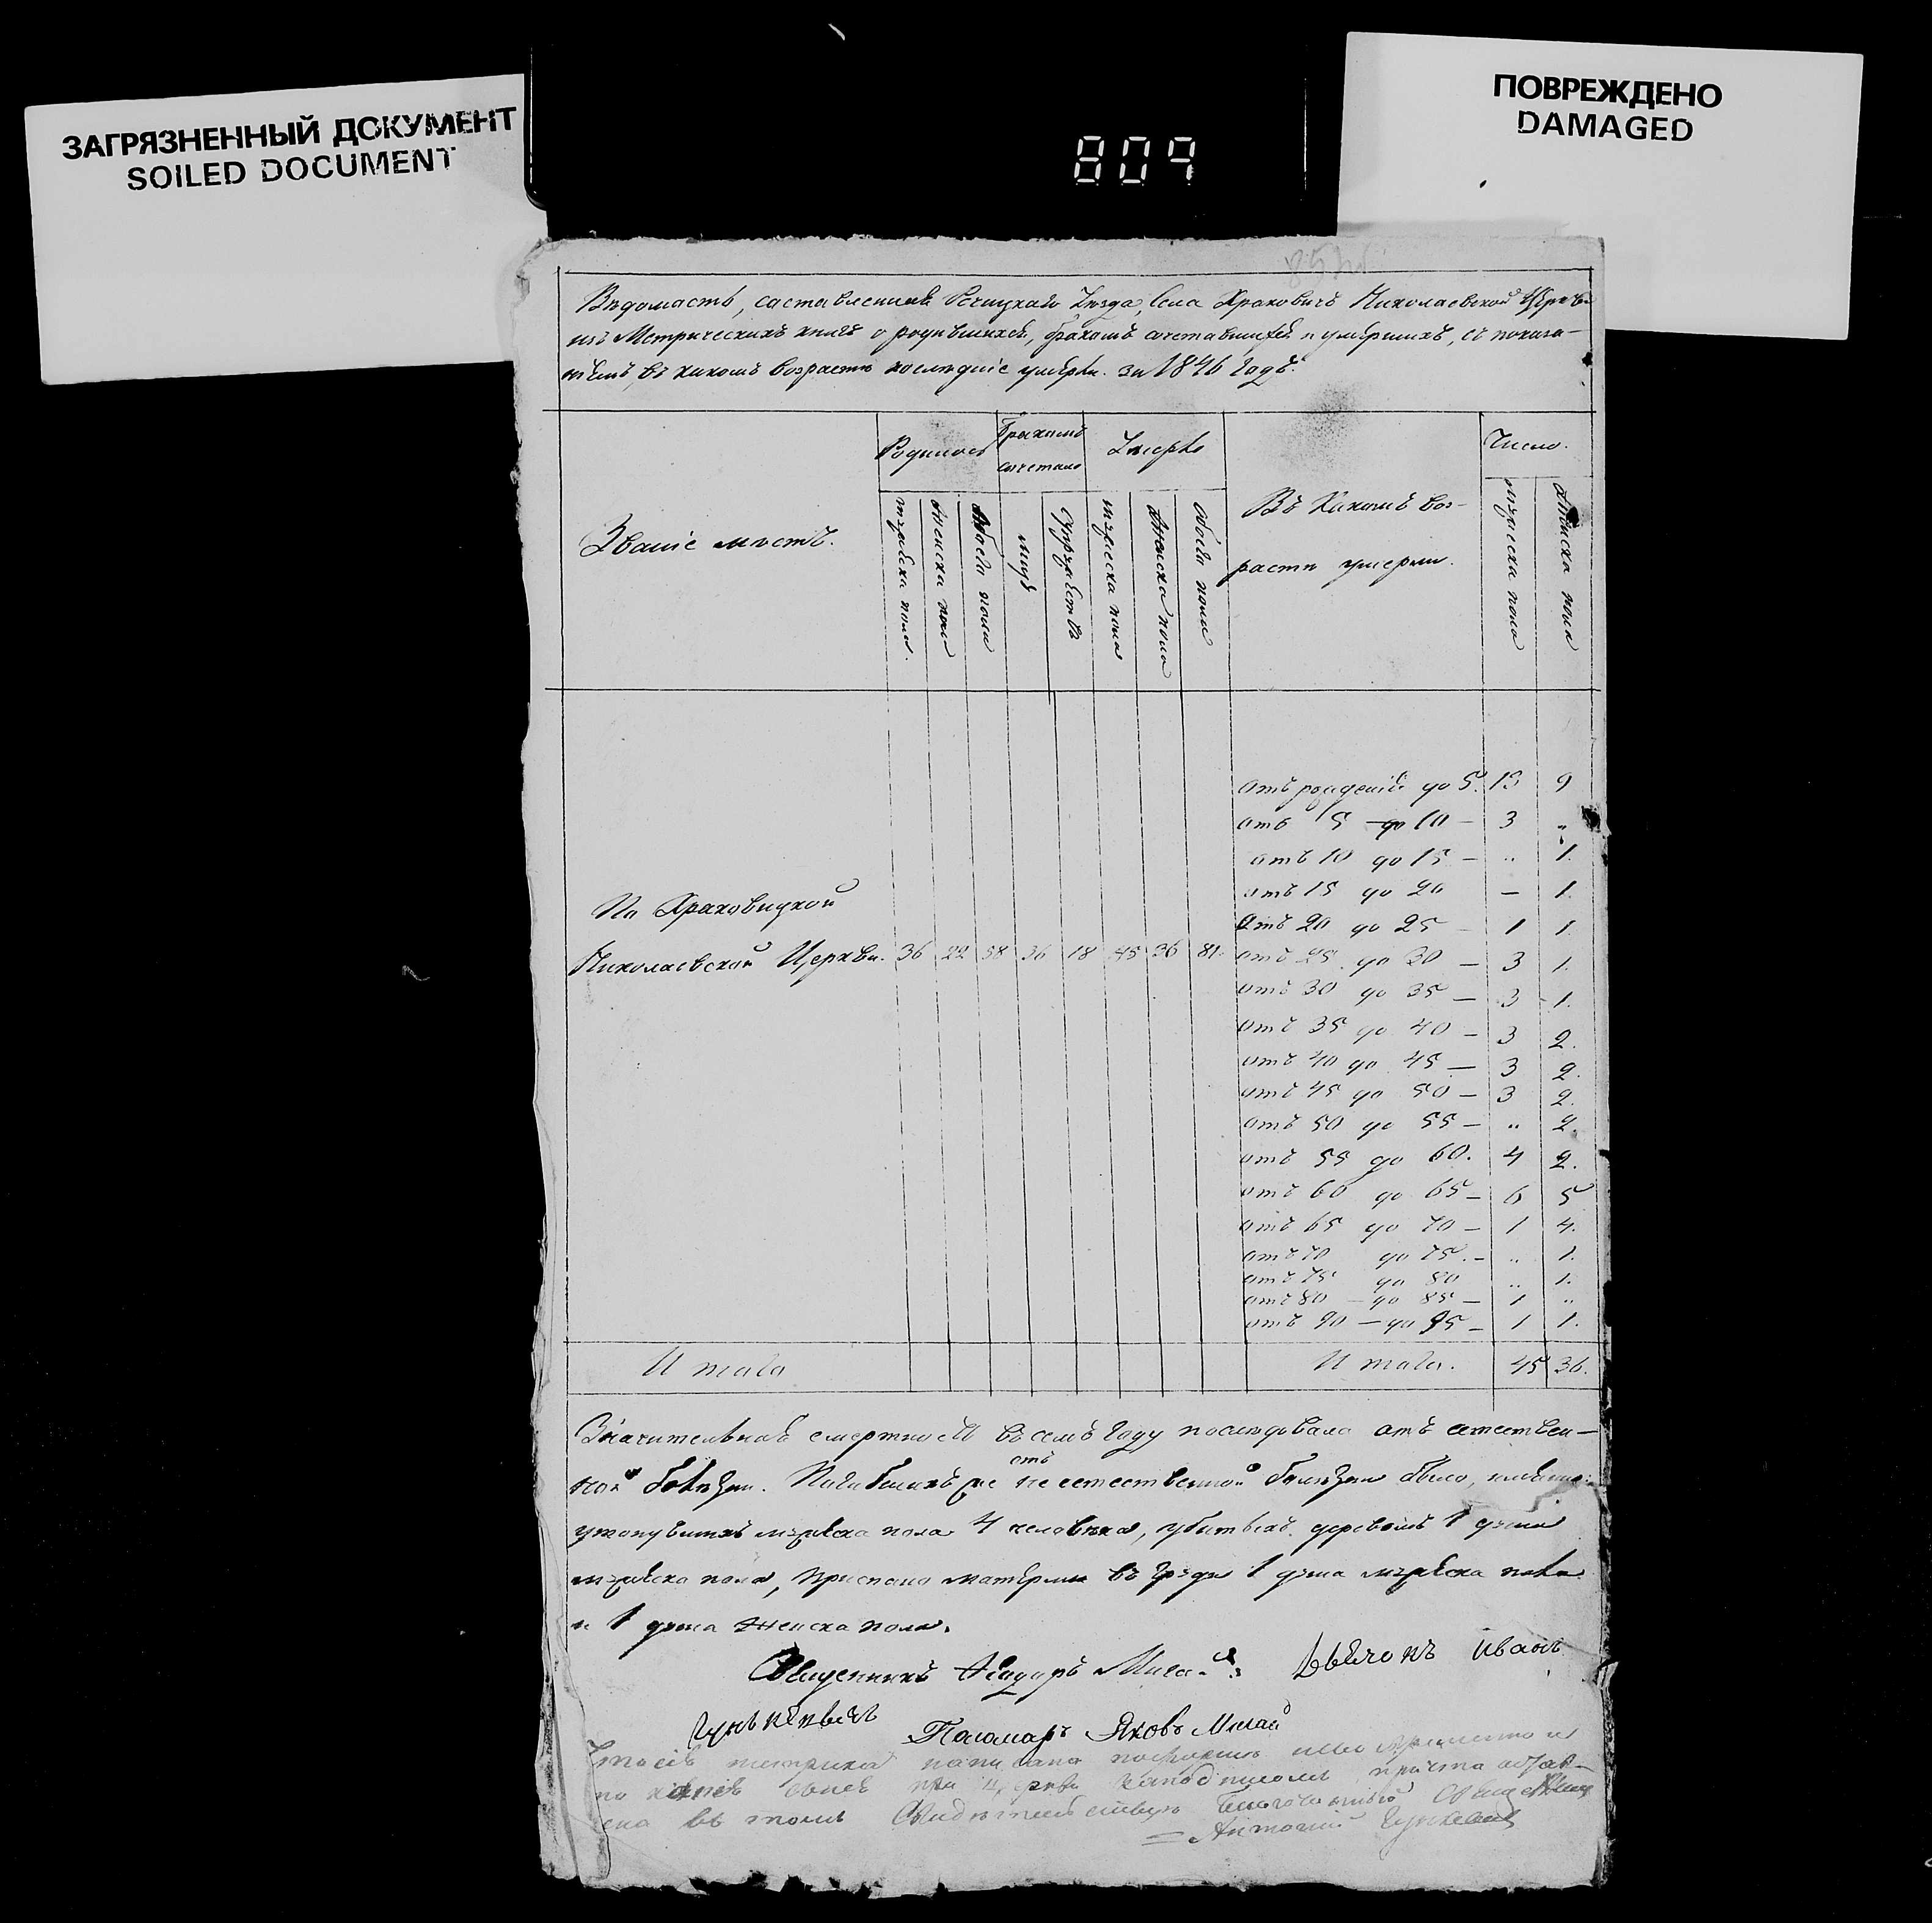 ЗАГРЯЗНЕННЫЙ ДОКУМЕНТ
SOILED DOCUMENT
ПОВРЕЖДЕНО
DAMAGED
809
Вѣдомасть, саставленная Речицкаго Уезда, Села Храковичъ Николаевской Церкви
изъ Метрическихъ книгъ о родившихся, бракомъ сочетавшихся и умершихъ, съ показа-
ніемъ, въ какомъ возрасте последніе умерли. за 1846 годъ.
Званіе местъ.
Родилось
мужеска пола.
женска пола
обоего пола
Бракомъ сочетано
лицъ
супружествъ
Умерло
мужеска пола
женска пола
обоего пола
Въ Какомъ воз-
расте умерли.
Число.
мужеска пола
женска пола
По Храковицкой
Николаевской Церкви. 36 22 58 36 18 45 36 81.
отъ рожденія до 5. 13 9
отъ 5 до 10 — 3 „
отъ 10 до 15 — „ 1.
отъ 15 до 20 — 1.
отъ 20 до 25 — 1 1.
отъ 25 до 30 — 3 1.
отъ 30 до 35 — 3 1.
отъ 35 до 40 — 3 2.
отъ 40 до 45 — 3 2.
отъ 45 до 50 — 3 2.
отъ 50 до 55 — „ 2.
отъ 55 до 60. 4 2.
отъ 60 до 65 — 6 5
отъ 65 до 70 — 1 4.
отъ 70 до 75. — „ 1.
отъ 75 до 80 „ 1.
отъ 80 — до 85 — 1 „
отъ 90 — до 95 — 1 1.
Итаго
Итаго. 45 36.
Значительная смертность въ семъ году последовала отъ естествен-
ной болезни. Погибшихъ же отъ не естественной болезни было, именно:
утонувшихъ мужеска пола 4 человека, убитыхъ деревомъ 1 душа
мужеска пола, приспано матерями въ груди 1 душа мужеска пола
и 1 душа женска пола.
Священникъ Феодоръ Мигай Дьячокъ Иванъ
Гунькевичъ Пономарь Яковъ Мигай
метрика написана
въ томъ Свидетельствую Благочинный Священникъ
Антоній Гунькевич